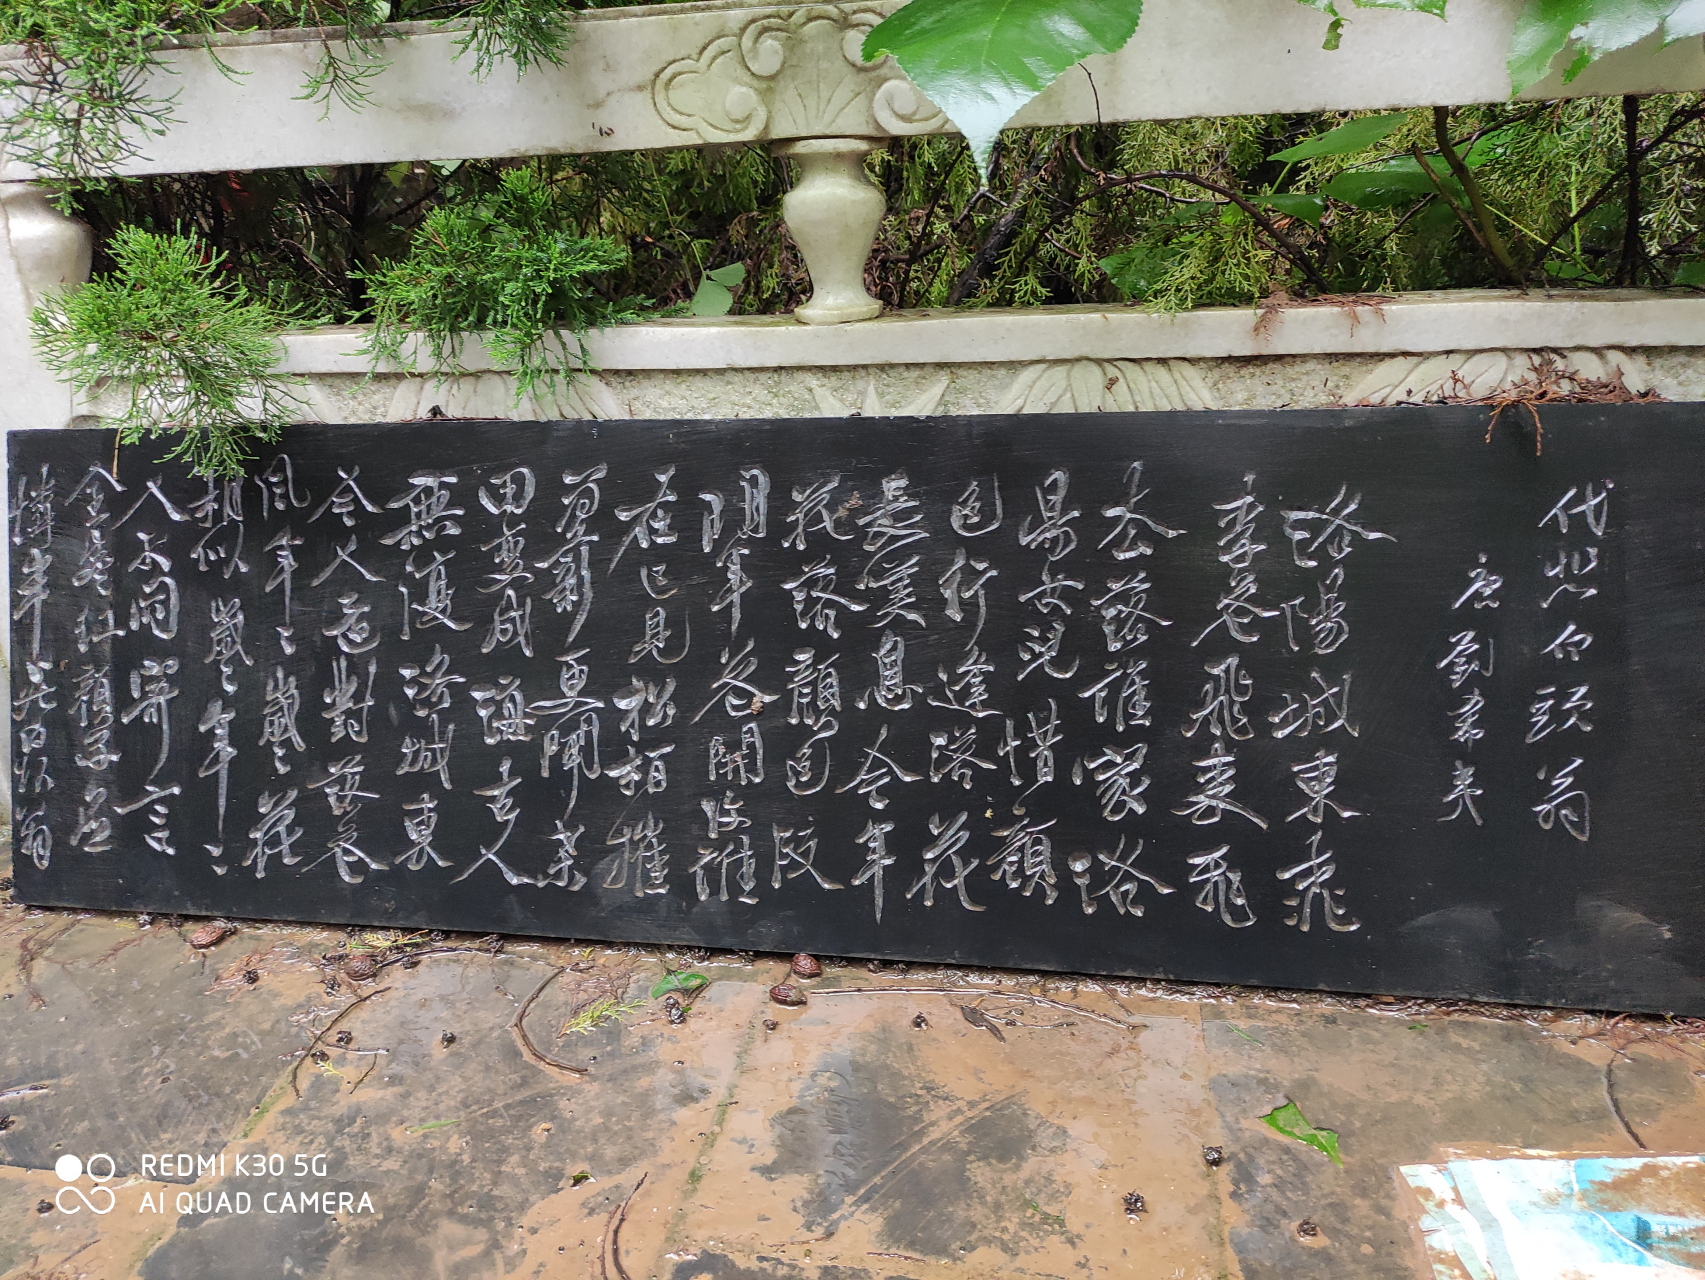 代悲白頭翁
唐劉希夷
洛陽城東桃
李花飛來飛
去落誰家洛
陽女兒惜顏
色行逢落花
長嘆息今年
花落顏色改
明年花開復誰
在已見松柏摧
為薪更聞桑
田變成海古人
無復洛城東
今人還對落花
風年々歲々花
相似歲々年々
人不同寄言
全盛紅顏子應
憐半死白頭翁
REDMI K30 5G
AI QUAD CAMERA